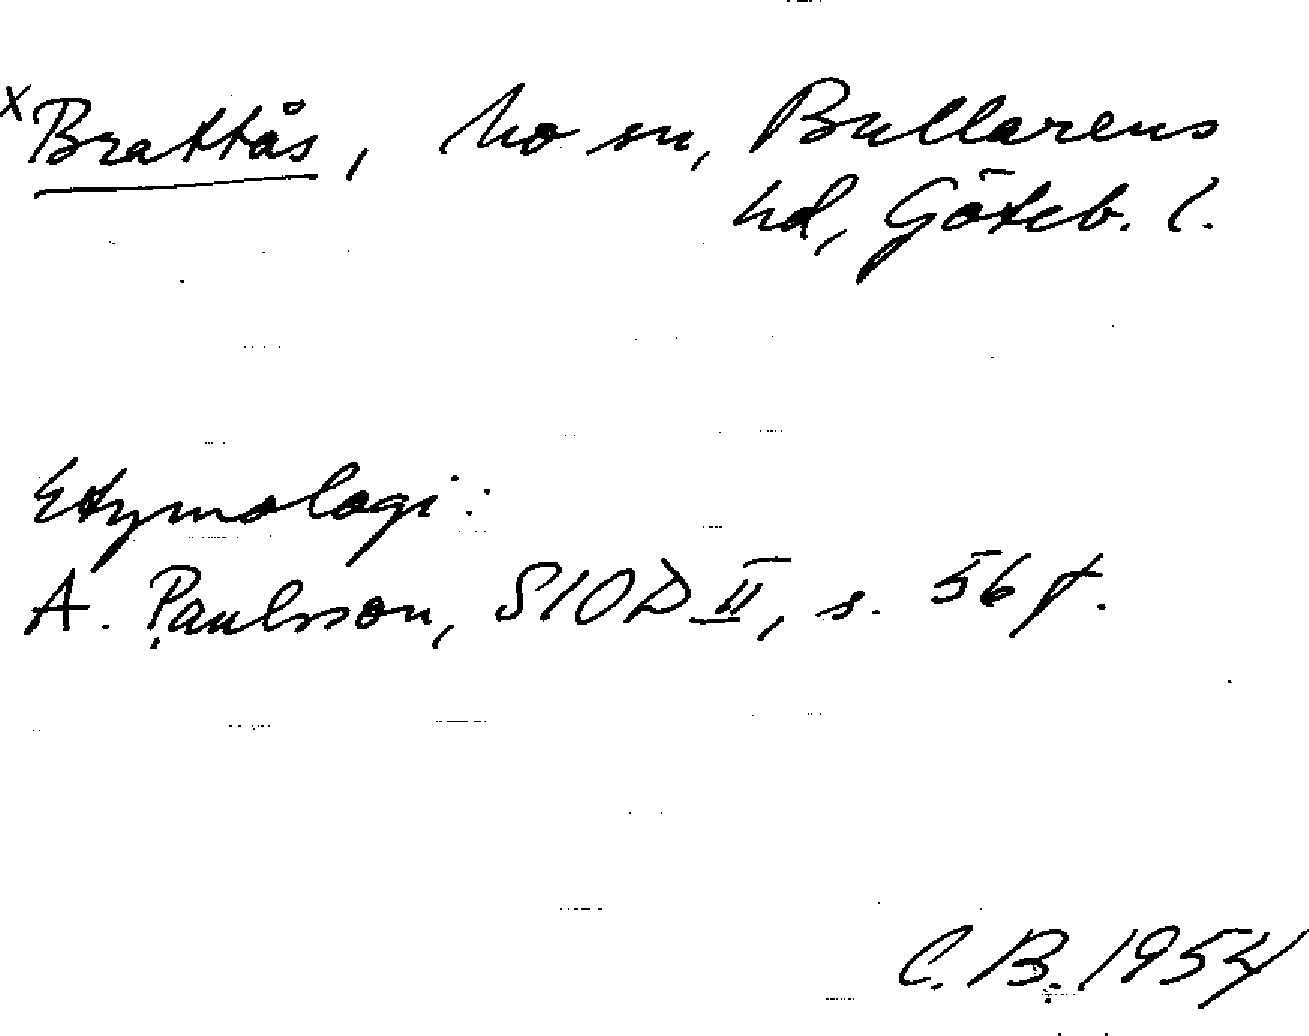 x Brattås, Mo sn, Bullarens
hd, Göteb. l.
Etymologi:
A. Paulsson, SIOD II, s. 56 f.
C. B. 1954